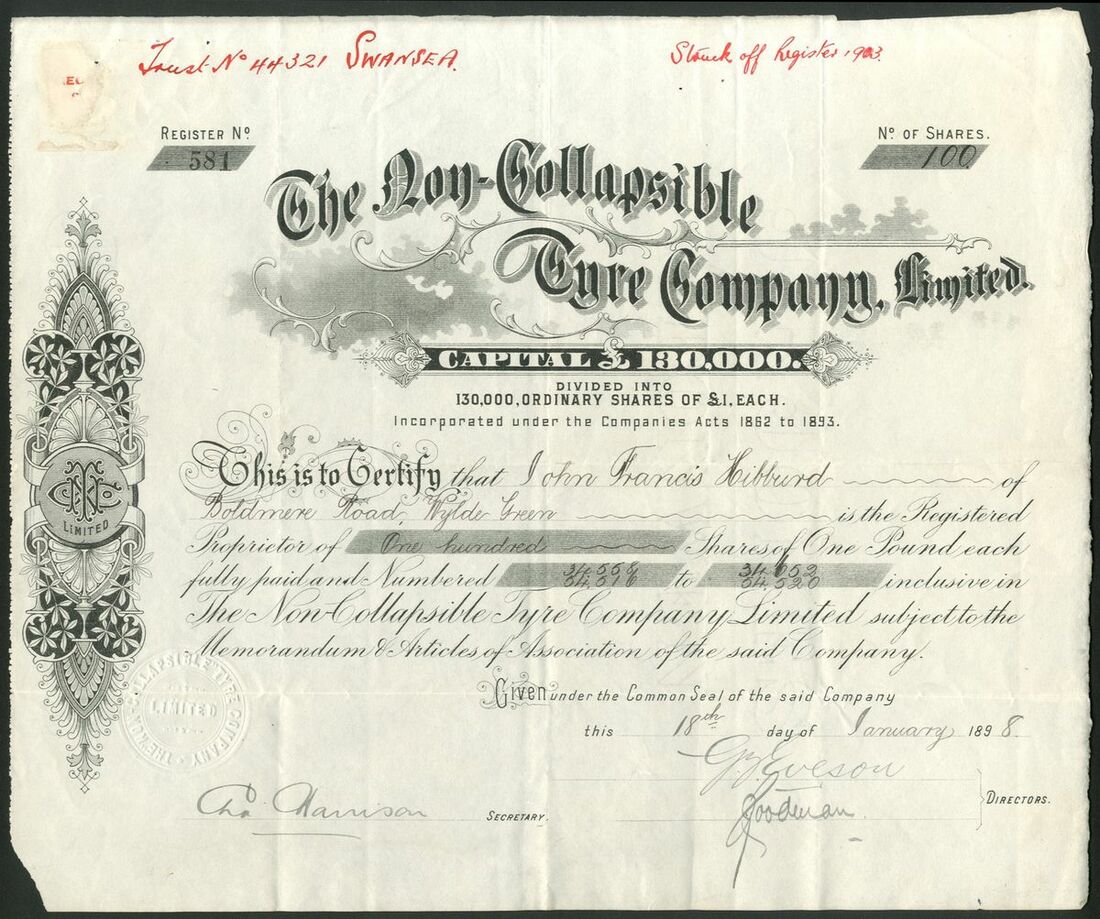 Trust No 44321 SWANSEA.
Struck off Register 1903.
REGISTER No.
581
No. OF SHARES.
100
The Non-Collapsible
Tyre Company, Limited.
CAPITAL £130,000.
DIVIDED INTO
130,000, ORDINARY SHARES OF £1, EACH.
Incorporated under the Companies Acts 1862 to 1893.
This is to Certify that John Francis Hibburd of
Boldmere Road, Wylde Green is the Registered
Proprietor of One hundred Shares of One Pound each
fully paid and Numbered 34,558 to 34,652
54,516 54,520 inclusive in
The Non-Collapsible Tyre Company Limited subject to the
Memorandum & Articles of Association of the said Company.
LIMITED
THE NON-COLLAPSIBLE TYRE COMPANY
LIMITED
Given under the Common Seal of the said Company
this 18th day of January 1898.
Eveson
Goodman
DIRECTORS.
Harrison
SECRETARY.